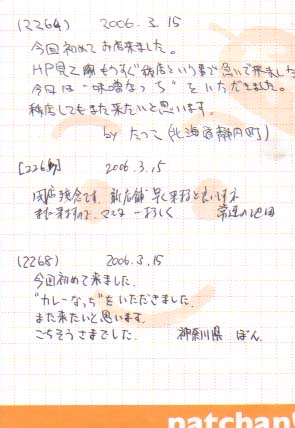 (2264) 2006.3.15
今回初めてお店来ました。
HP見てもうすぐ移店という事で急いで来ました
今日は"味噌なっち"をいただきました。
移店してもまた来たいと思います。
by たつこ (北海道静内町)
2006.3.15
閉店残念です。新店舗早く来ると良いですネ
また来ますので、ママヨーろしく 常連の池田
(2268) 2006.3.15
今回初めて来ました。
"カレーなっち"をいただきました。
また来たいと思います。
ごちそうさまでした。 神奈川県 ぽん
patchan